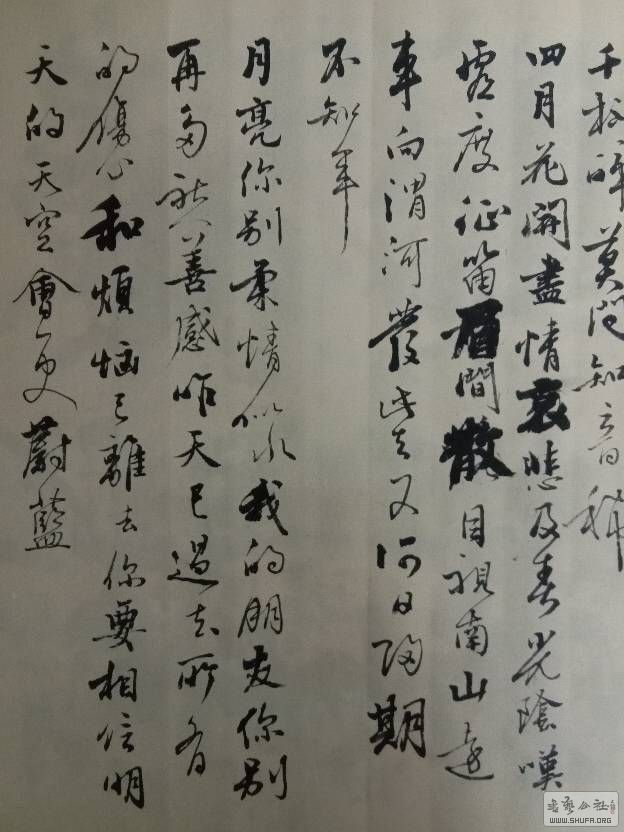 千杯醉莫問知音稀
四月花開盡情哀悲及春光陰嘆
虛度征笛眉間散目視南山遠
車向渭河發此去又何日歸期
不知年
月亮你别柔情似水我的朋友你别
再多愁善感昨天已過去所有
的傷心和煩惱已離去你要相信明
天的天空會更蔚藍
书法公社
WWW.SHUFA.ORG